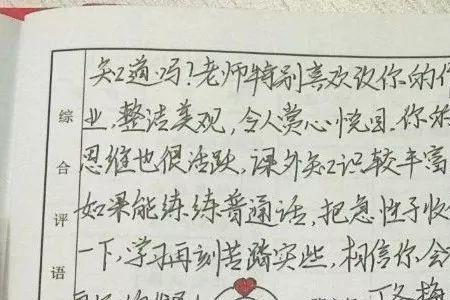 综合评语
知道吗?老师特别喜欢改你的作
业,整洁美观,令人赏心悦目。你的
思维也很活跃,课外知识较丰富
如果能练练普通话,把急性子收
一下,学习再刻苦踏实些,相信你会